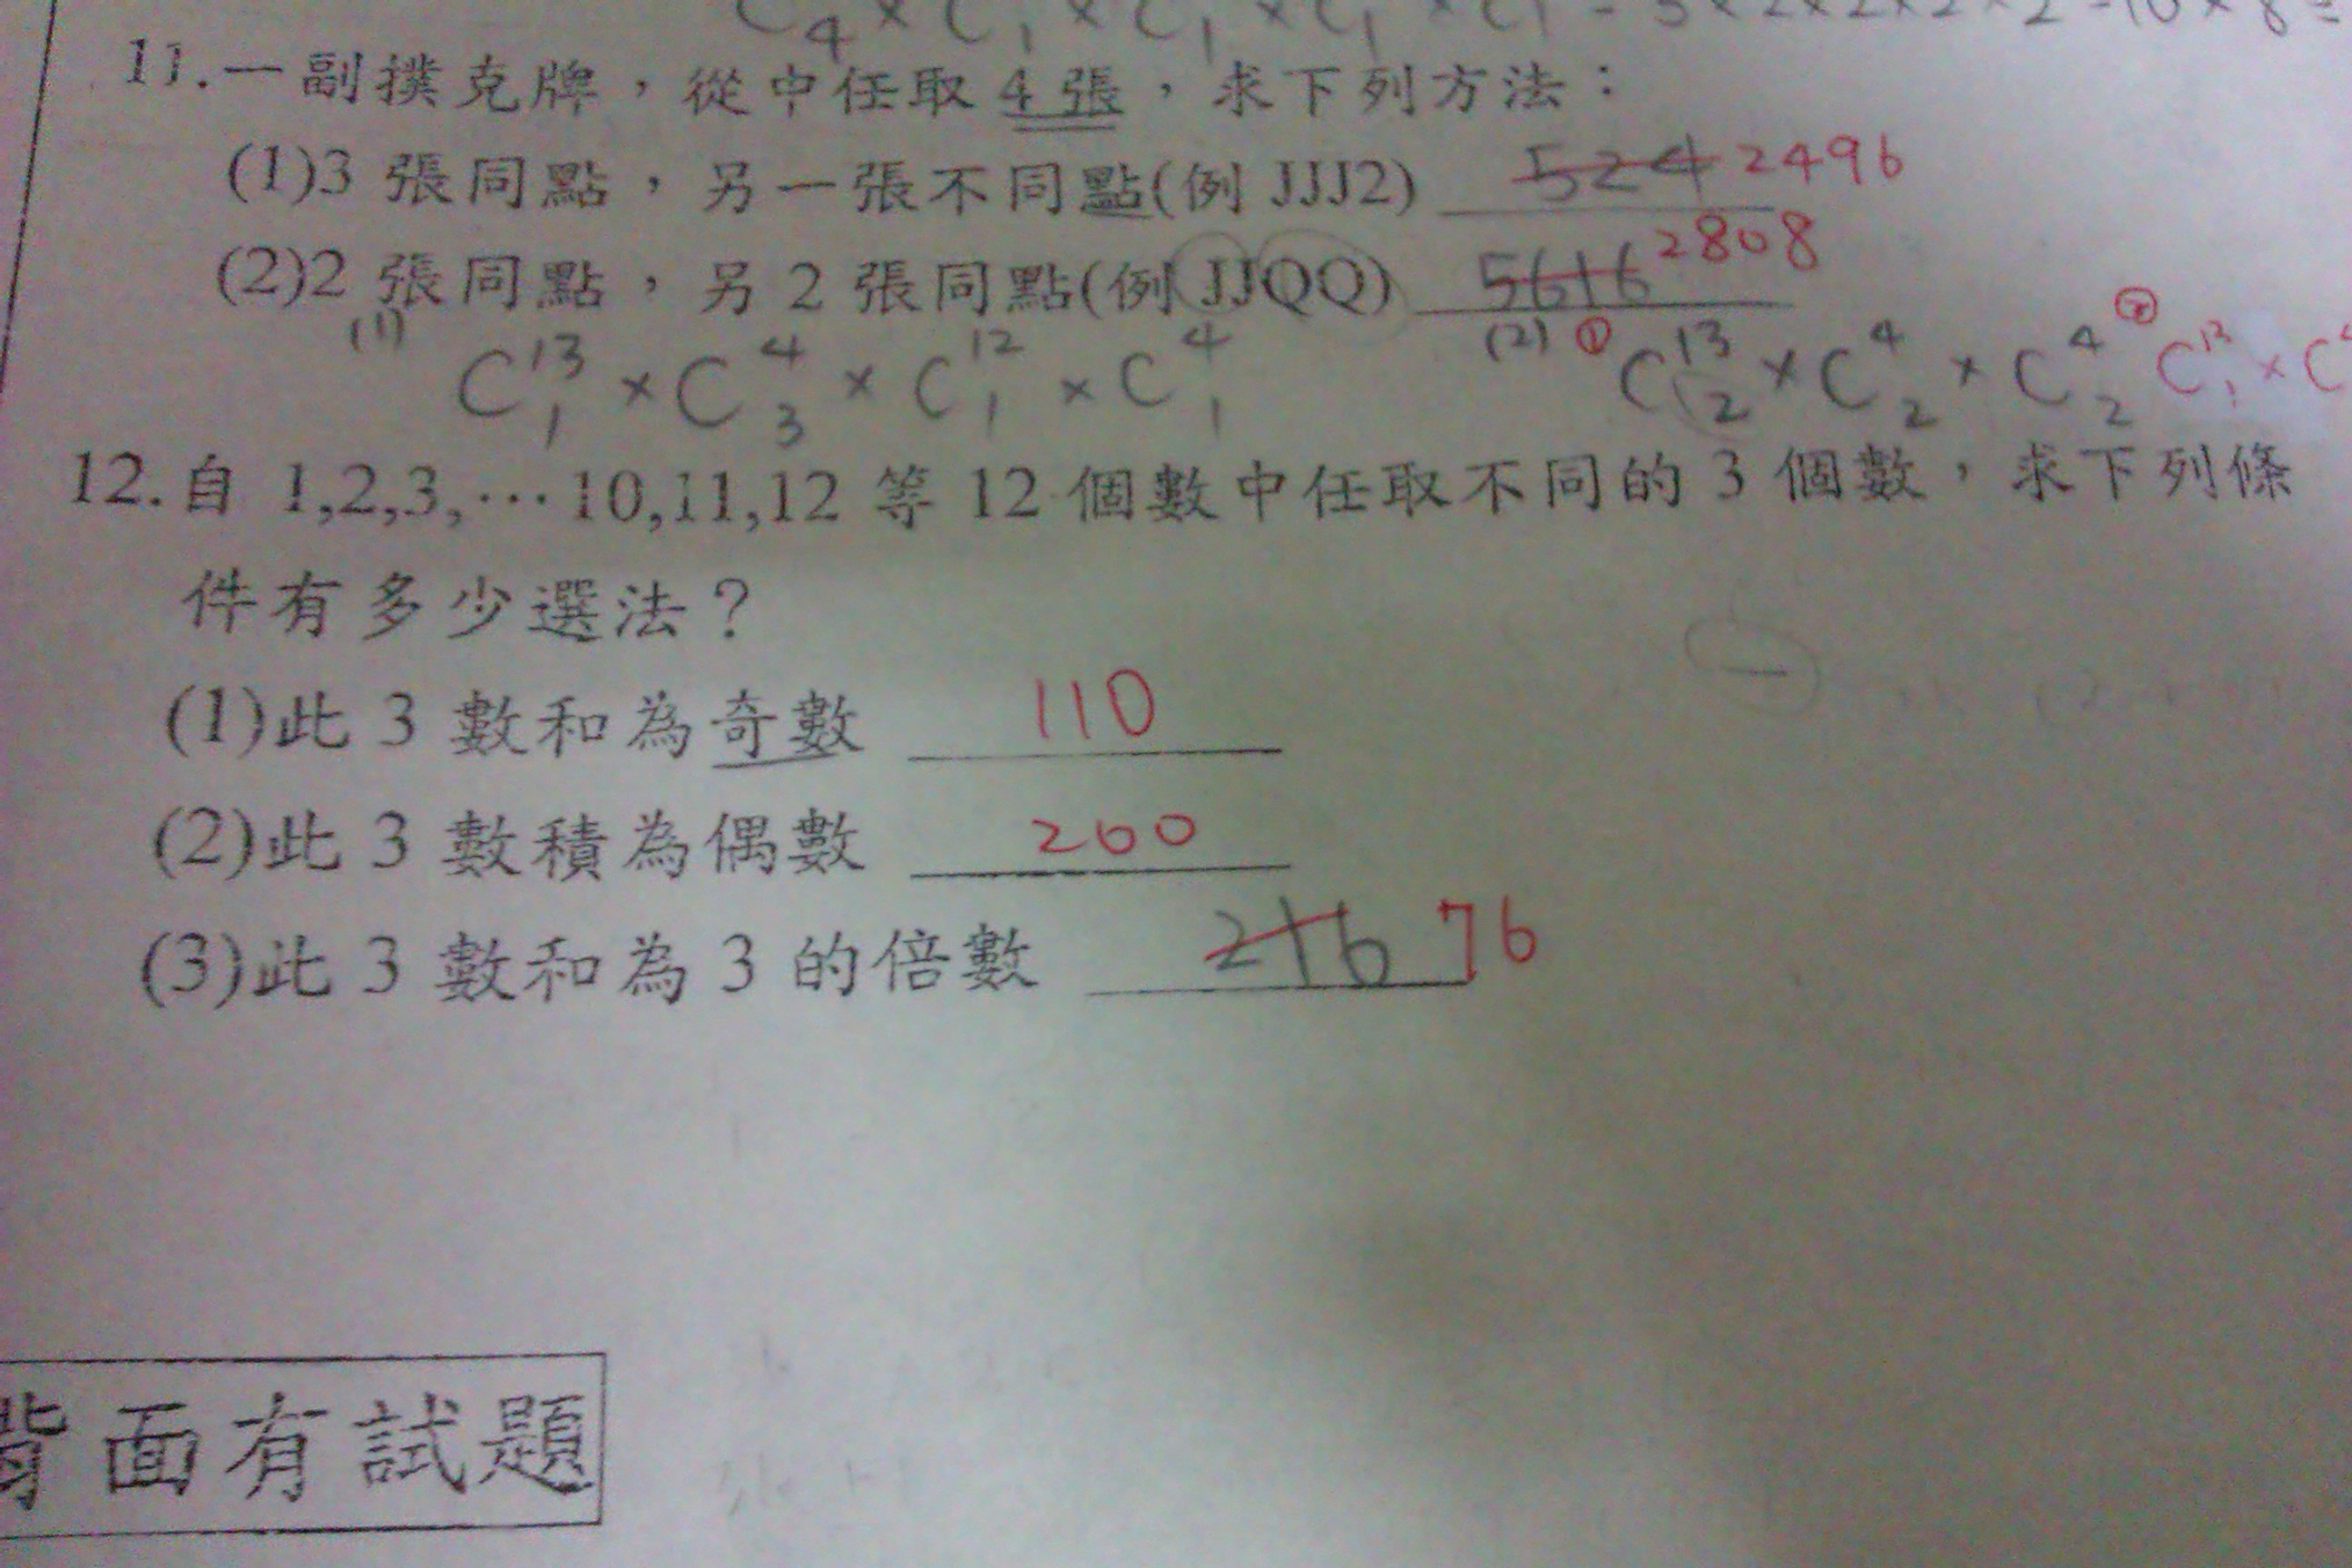 C₄ × C₁ × C₁ × C₁ × C₁ = 5×2×2×2×2
11.一副撲克牌，從中任取4張，求下列方法：
(1)3 張同點，另一張不同點(例 JJJ2) 524 2496
(2)2 張同點，另 2 張同點(例 JJQQ) 5616 2808
(1) C¹³₁ × C⁴₃ × C¹²₁ × C⁴₁ (2) ① C¹³₂ × C⁴₂ × C⁴₂ ② C¹³₁ × C
12.自 1,2,3,…10,11,12 等 12 個數中任取不同的 3 個數，求下列條
件有多少選法？
(1)此 3 數和為奇數 110
(2)此 3 數積為偶數 200
(3)此 3 數和為 3 的倍數 216 76
背面有試題